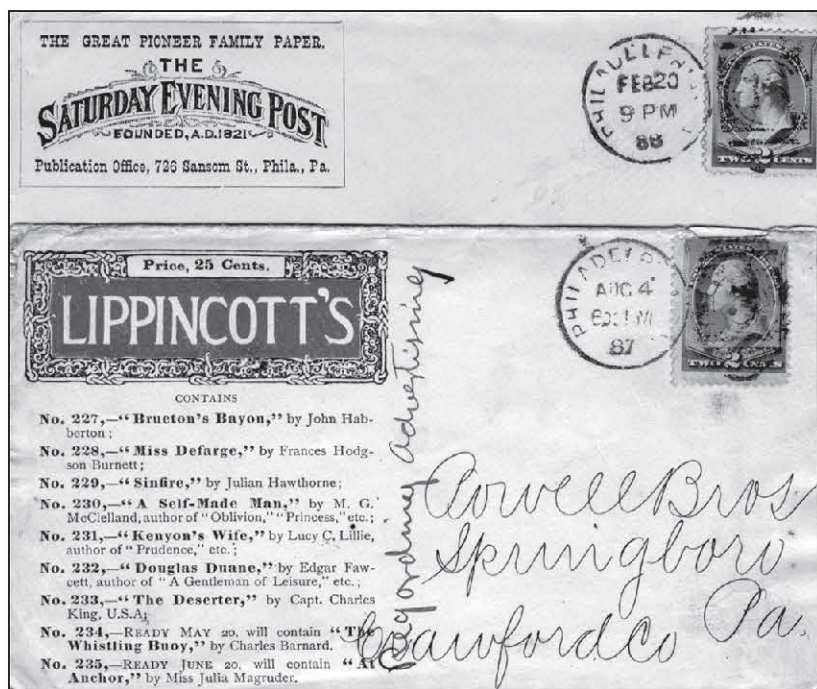 THE GREAT PIONEER FAMILY PAPER.
THE
SATURDAY EVENING POST
FOUNDED, A.D. 1821
Publication Office, 726 Sansom St., Phila., Pa.
FEB 20
9 PM
88
TWO 2 CENTS
Price, 25 Cents.
LIPPINCOTT'S
CONTAINS
No. 227,—"Brueton's Bayou," by John Hab-
berton;
No. 228,—"Miss Defarge," by Frances Hodg-
son Burnett;
No. 229,—"Sinfire," by Julian Hawthorne;
No. 230,—"A Self-Made Man," by M. G.
McClelland, author of "Oblivion," "Princess," etc.;
No. 231,—"Kenyon's Wife," by Lucy C. Lillie,
author of "Prudence," etc.;
No. 232,—"Douglas Duane," by Edgar Faw-
cett, author of "A Gentleman of Leisure," etc.;
No. 233,—"The Deserter," by Capt. Charles
King, U.S.A;
No. 234,—READY MAY 20, will contain "The
Whistling Buoy," by Charles Barnard.
No. 235,—READY JUNE 20, will contain "At
Anchor," by Miss Julia Magruder.
Regarding Advertising
AUG 4
87
TWO 2 CENTS
Bros
Springboro
Crawford Co Pa.